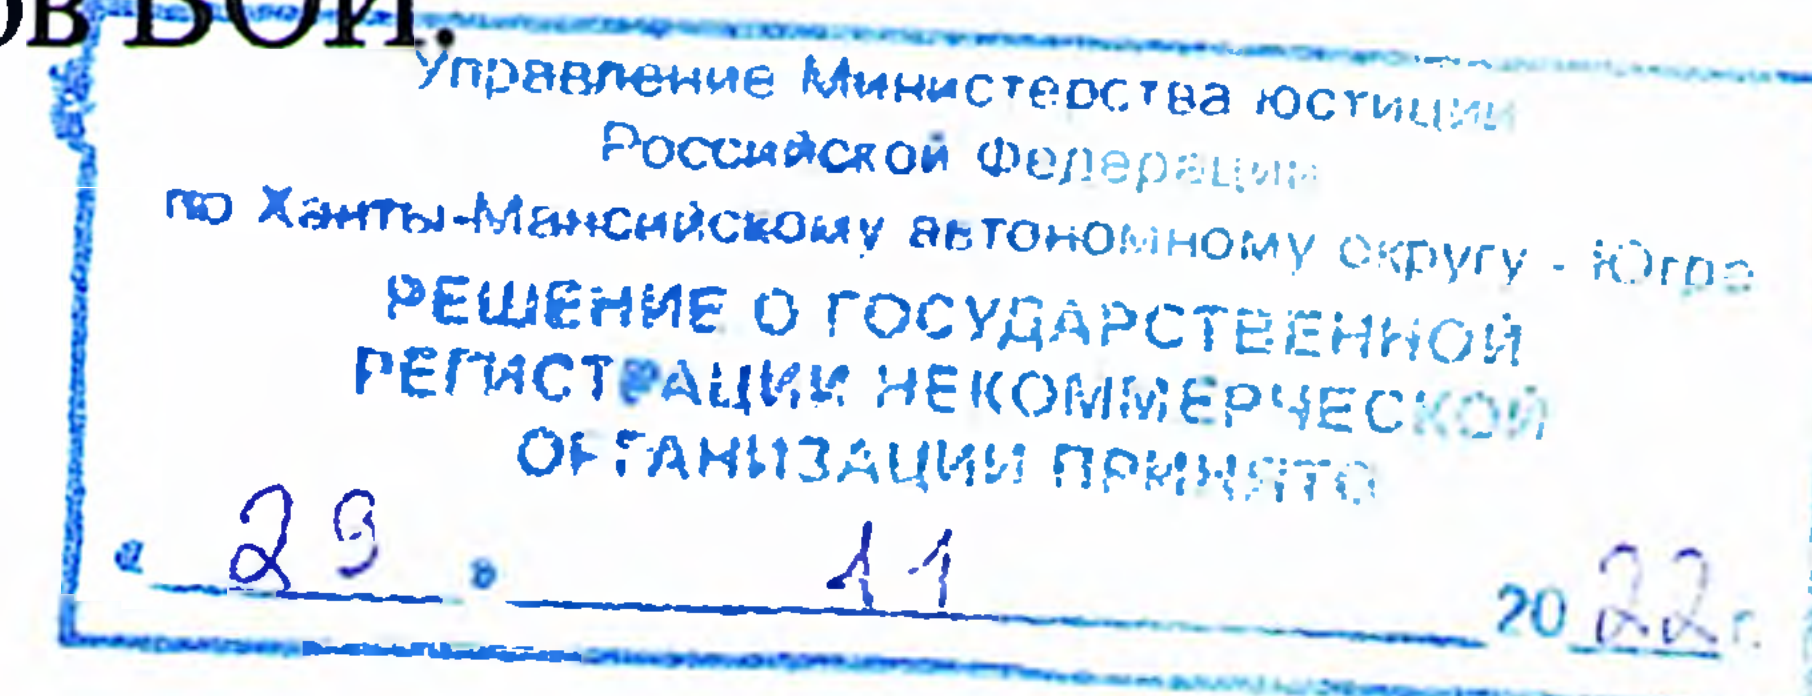 ов ВОИ.
Управление Министерства юстиции
Российской Федерации
по Ханты-Мансийскому автономному округу - Югре
РЕШЕНИЕ О ГОСУДАРСТВЕННОЙ
РЕГИСТРАЦИИ НЕКОММЕРЧЕСКОЙ
ОРГАНИЗАЦИИ ПРИНЯТО
« 29 » 11 2022 г.